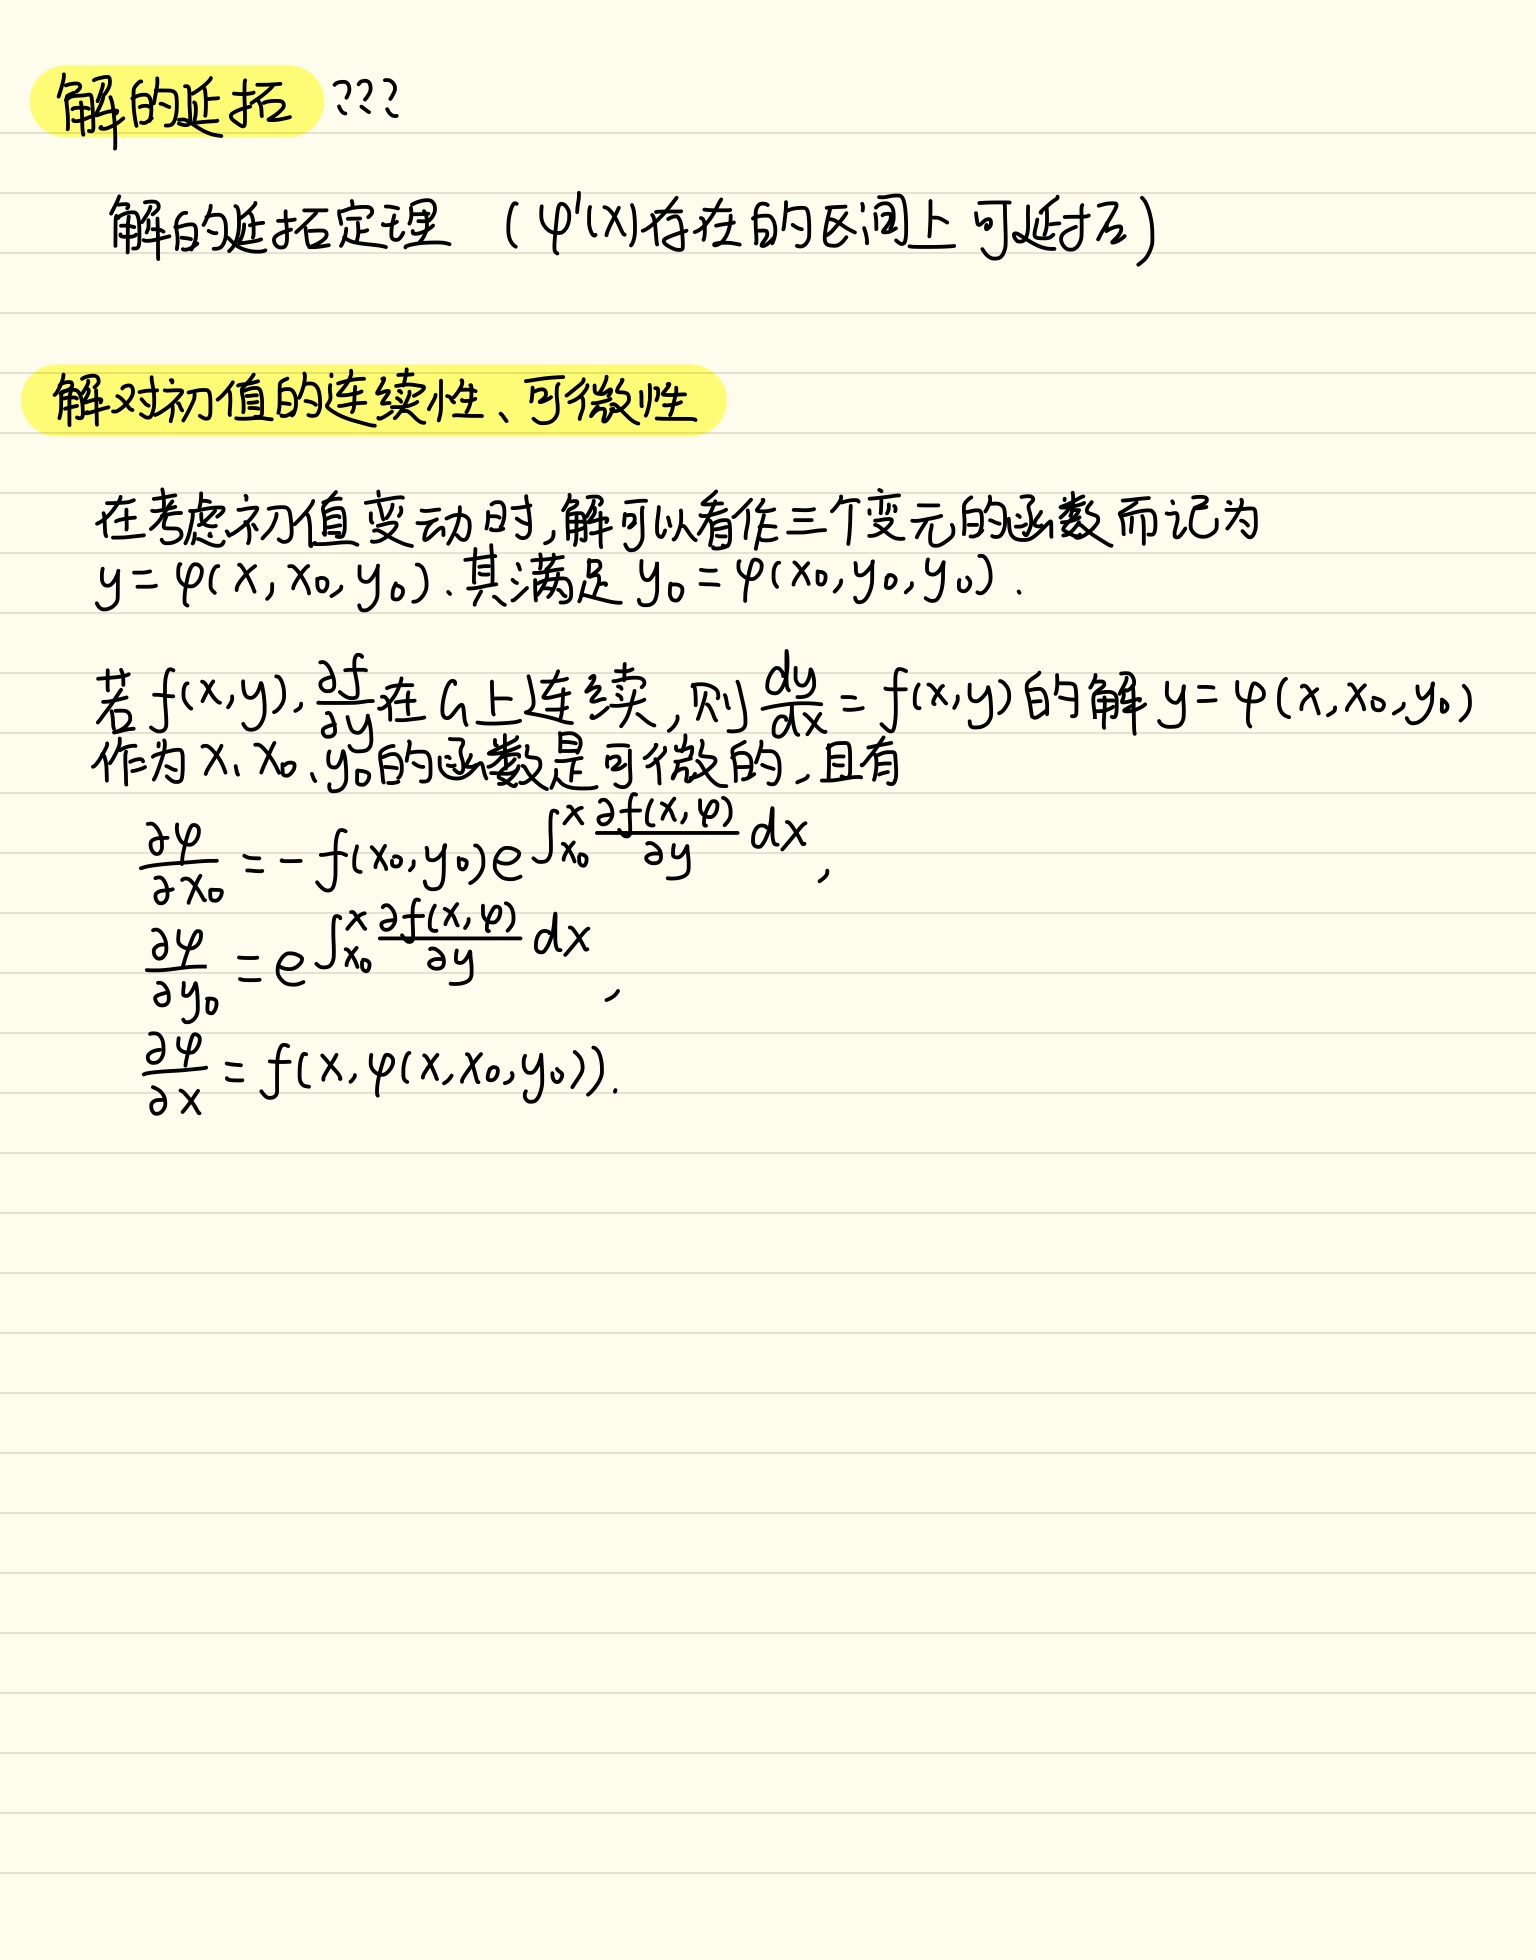 解的延拓 ???
解的延拓定理 (φ'(x)存在的区间上可延拓)
解对初值的连续性、可微性
在考虑初值变动时,解可以看作三个变元的函数而记为
y=φ(x,x₀,y₀).其满足 y₀=φ(x₀,y₀,y₀).
若 f(x,y),∂f/∂y在G上连续,则 dy/dx=f(x,y)的解 y=φ(x,x₀,y₀)
作为x、x₀、y₀的函数是可微的,且有
∂φ/∂x₀=-f(x₀,y₀)e^{∫_{x₀}^{x} ∂f(x,φ)/∂y dx},
∂φ/∂y₀=e^{∫_{x₀}^{x} ∂f(x,φ)/∂y dx},
∂φ/∂x=f(x,φ(x,x₀,y₀)).